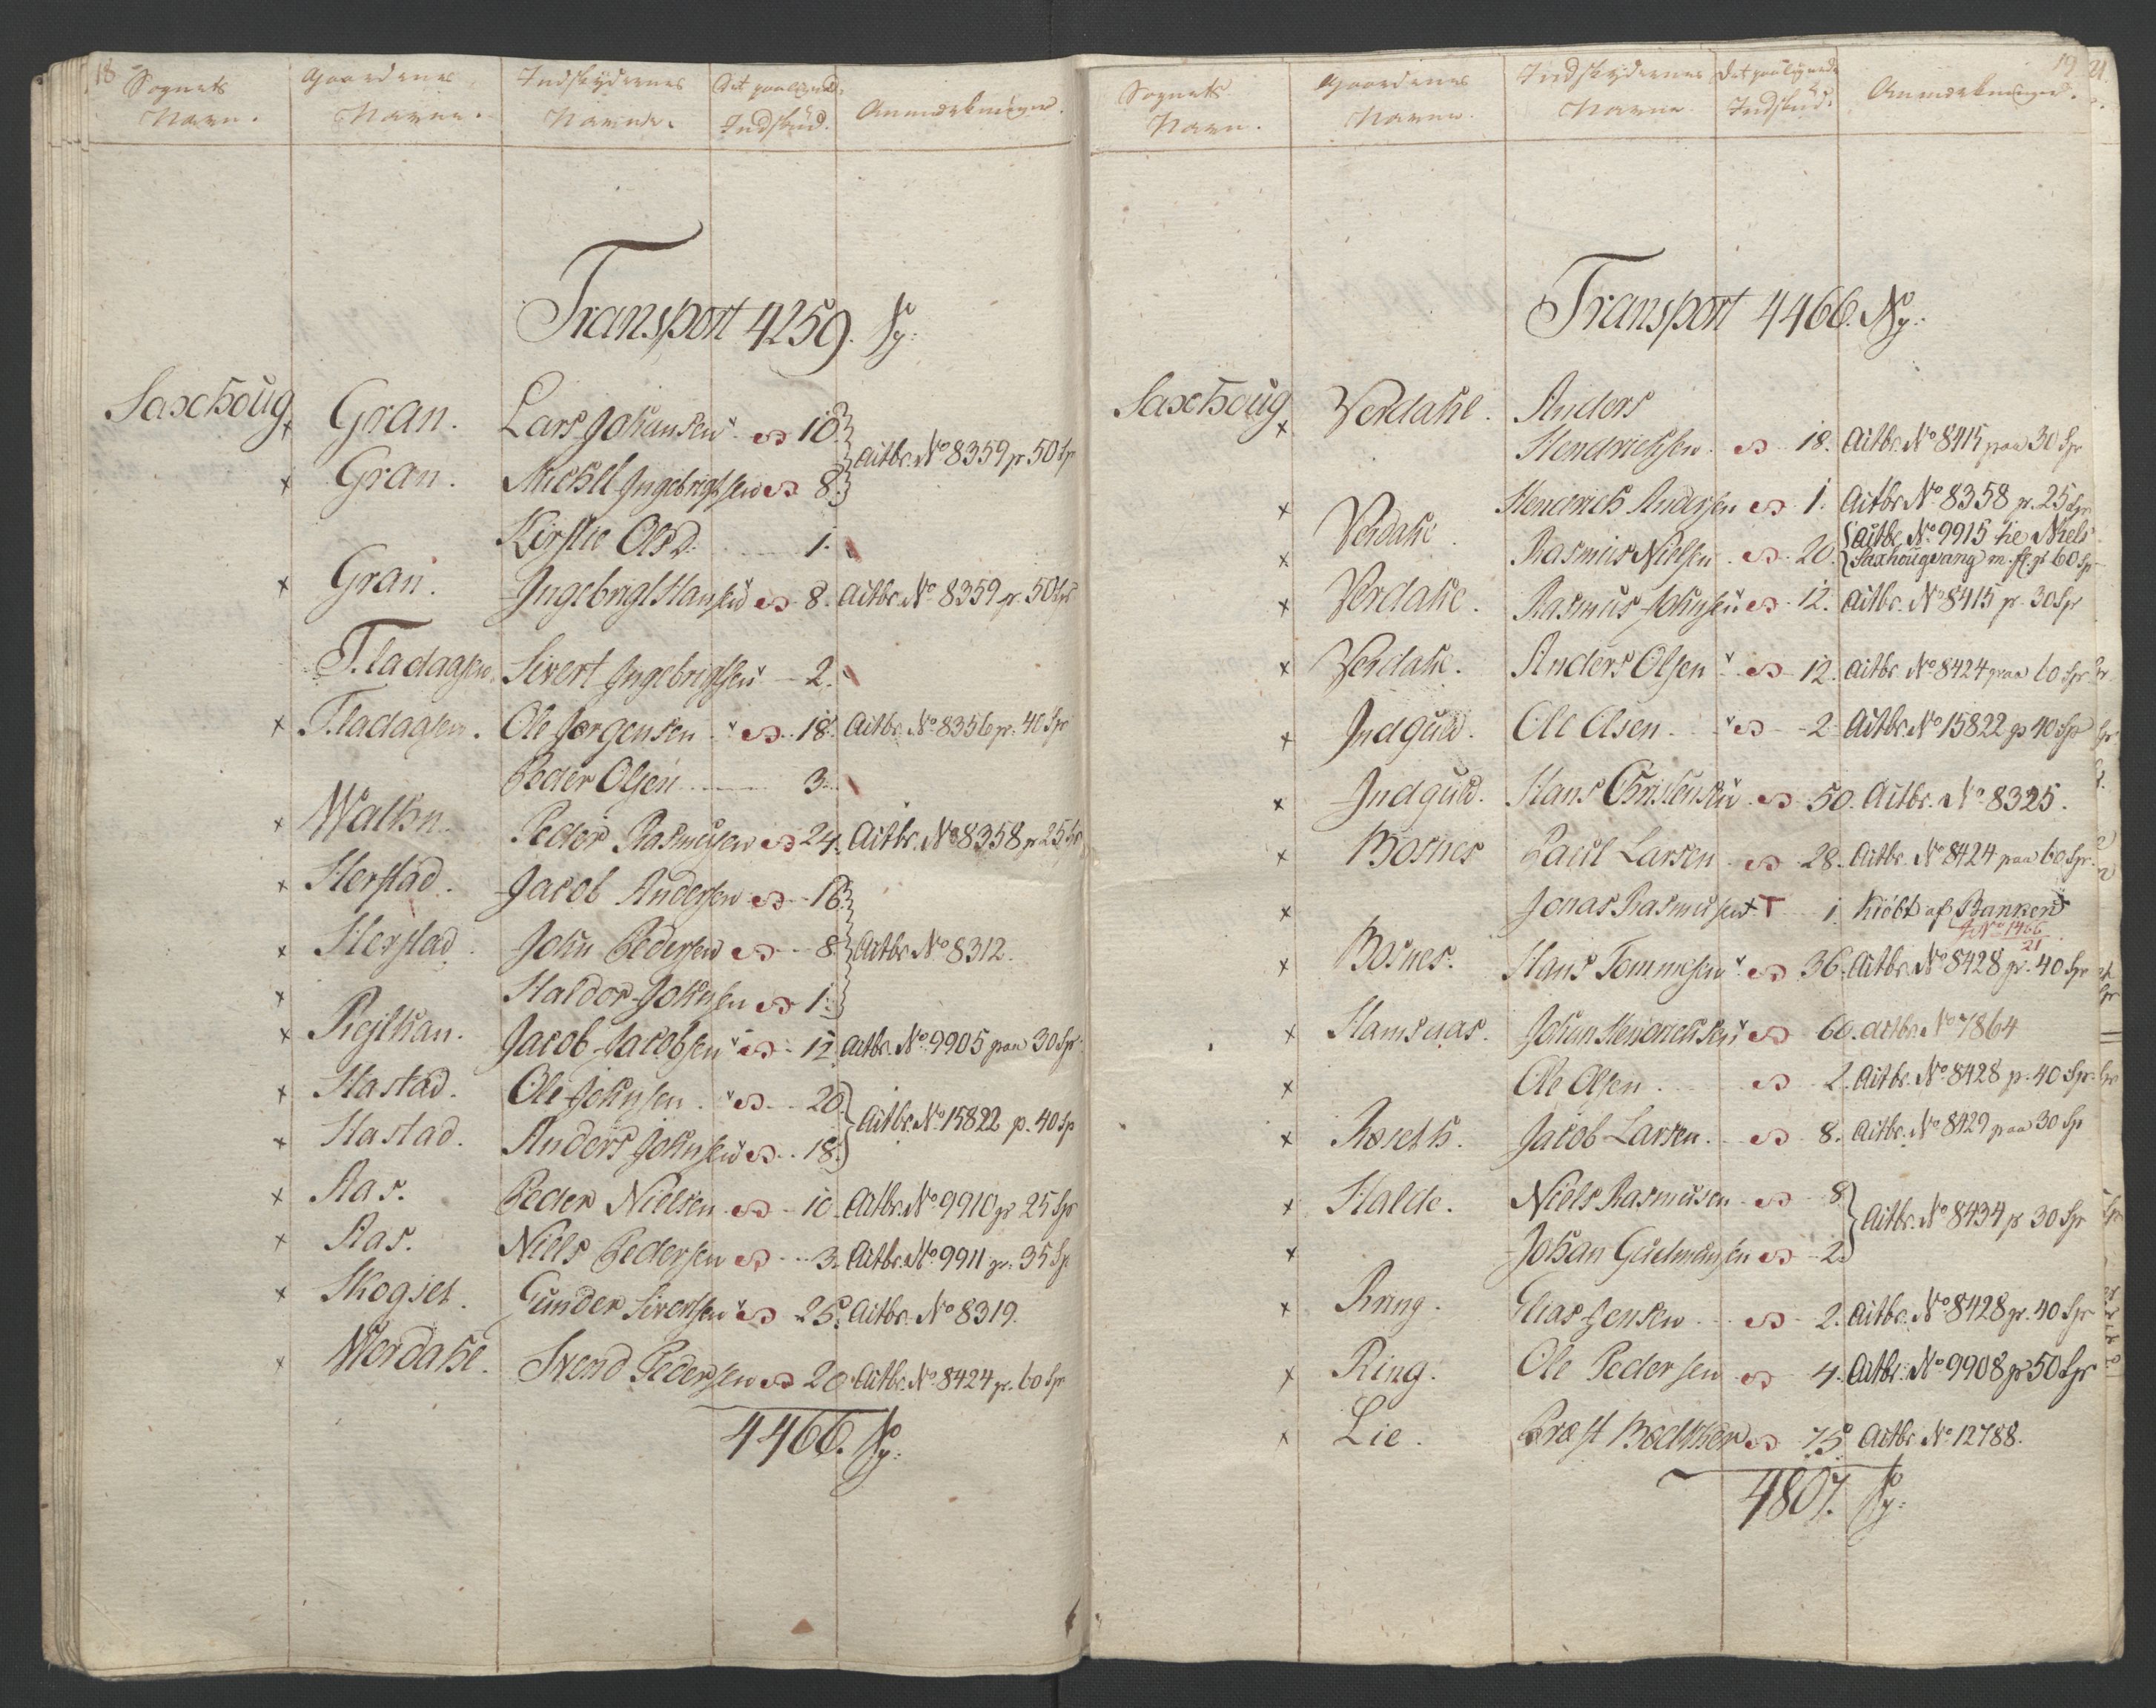 18
Sognets Navn. Gaardenes Navne. Indskydernes Navne. Det paalignede Indskud. Anmærkninger.
Transport 4259. Sp:
Saxhoug
× Gran. Lars Johansen 10. Actbr. No 8359 pr 50 Sp
× Gran. Michel Ingebrigtsen 8.
Kirstie Olsd. 1.
× Gran. Ingebrigt Hansen 8. Actbr. No 8359 pr. 50 Sp
Tladagsen. Sivert Ingebrigtsen 2.
× Tladagsen. Ole Jørgensen 18. Actbr. No 8356 pr. 40 Sp
Peder Olsen 3.
× Walhn. Peder Rasmusen 24. Actbr. No 8358 pr 25 Sp
× Herstad. Jacob Andersen 16.
× Herstad. John Pedersen 8. Actbr. No 8312.
× Haldor Johnsen 1.
× Rejlhan. Jacob Jacobsen 12. Actbr. No 9905 paa 30 Sp
× Hastad. Ole Johnsen 20. Actbr. No 15822 p. 40 Sp
× Hastad. Anders Johnsen 18.
× Aas. Peder Nielsen 10. Actbr. No 9910 pr 25 Sp
× Aas. Niels Pedersen 3. Actbr. No 9911 pr. 35 Sp
× Skogset. Gunder Sivertsen 25. Actbr. No 8319.
× Werdahl. Svend Pedersen 20. Actbr. No 8424 pr. 60 Sp
4466. Sp:
19
Sognets Navn. Gaardenes Navne. Indskydernes Navne Det paalignede Indskud. Anmærkninger.
Transport 4466. Sp:
Saxhoug
× Verdahl. Anders
Hendrichsen 18. Actbr. No 8415 paa 30 Sp
× Hendrich Andersen 1. Actbr No 8358 p. 25 Sp
× Verdahl. Rasmus Nielsen 20. Actbr. No 9915 Niels
Saxhougvang m. fl. pr 60 Sp
× Verdahl. Rasmus Johnsen 12. Actbr. No 8415 p. 30 Sp
× Verdahl. Anders Olsen 12. Actbr. No 8424 paa 60 Sp
× Indguld. Ole Olsen. 2. Actbr. No 15822 pr 40 Sp
× Indguld. Hans Christensen 50. Actbr. No 8325.
× Bosnes Paul Larsen 28. Actbr. No 8424 paa 60 Sp.
× Jonas Rasmusen × T 1 Kiöbt af Banken
J No 1466/21
× Bosnes. Hans Tommesen 36. Actbr. No 8428 pr. 40 Sp
× Hamsnas. Johan Hendrichsen 60. Actbr. No 7864
× Ole Olsen. 2. Actbr. No 8428 p. 40 Sp.
× Roseth. Jacob Larsen. 8. Actbr. No 8429 paa 30 Sp
× Halde. Niels Rasmusen 8. Actbr. No 8434 pr 30 Sp
× Johan Gudmunsen 2.
× Ring. Elias Jensen 2. Actbr. No 8428 pr. 40 Sp
× Ring. Ole Pedersen 4. Actbr. No 9908 pr 50 Sp
× Lie. Præst 75. Actbr No 12788.
4807. Sp: